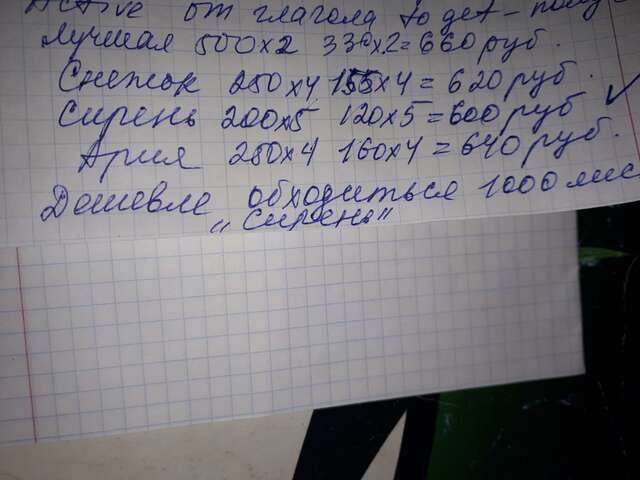 Active от глагола to get -
Лучшая 500x2 330x2=660руб.
Снежок 250x4 155x4=620руб.
Сирень 200x5 120x5=600руб ✓
Ария 250x4 160x4=640руб.
Дешевле обходиться 1000 лис
"Сирень"